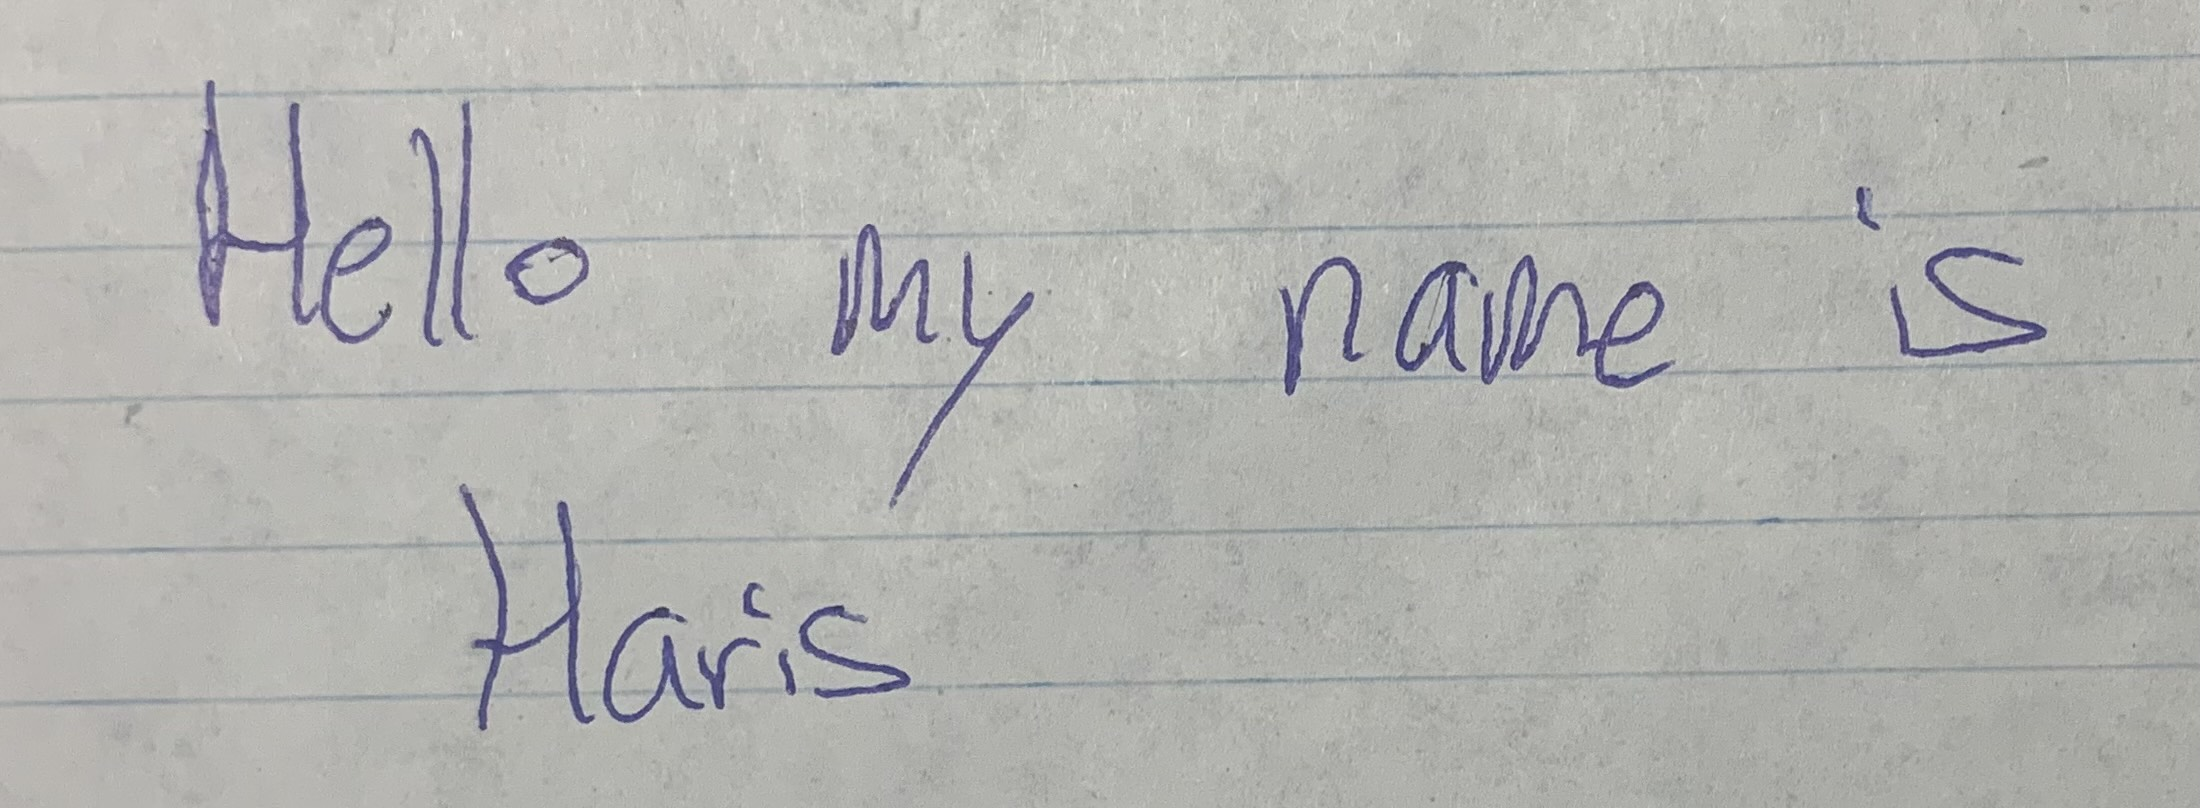 Hello my name is
Haris